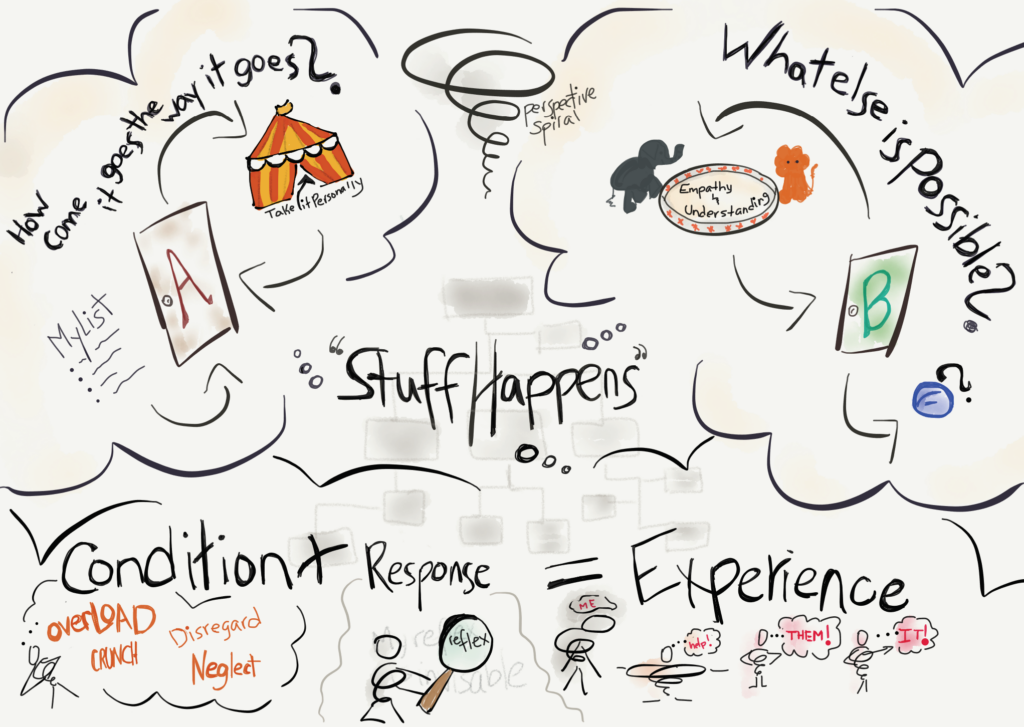 How come it goes the way it goes?
perspective
spiral
What else is possible?
Take it Personally
Empathy
&
Understanding
A
B
My List
?
"Stuff Happens"
Condition + Response = Experience
overLOAD
CRUNCH
Disregard
Neglect
reflex
ME
help!
THEM!
IT!